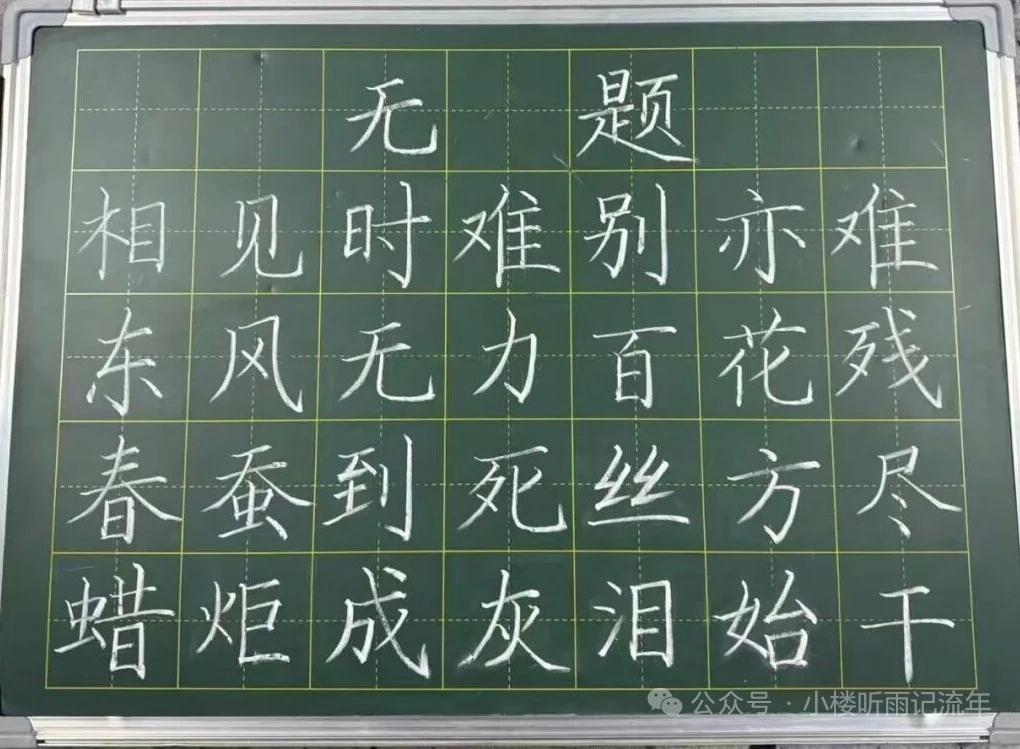 无题
相见时难别亦难
东风无力百花残
春蚕到死丝方尽
蜡炬成灰泪始干
公众号·小楼听雨记流年